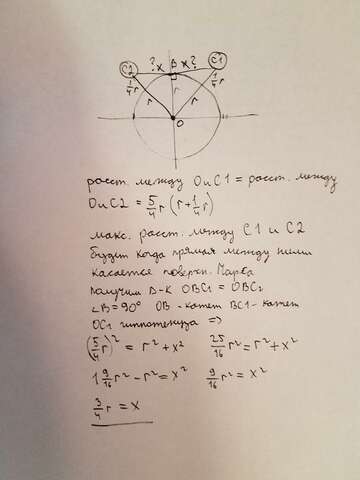 C2 ? x B x ? C1
1/4 r r r r 1/4 r
O
расст. между O и C1 = расст. между
O и C2 = 5/4 r (r + 1/4 r)
макс. расст. между C1 и C2
будет когда прямая между ними
касается поверхн. Марса
получим Δ-к OBC1 = OBC2
∠B = 90° OB - катет BC1 - катет
OC1 гиппотенуза =>
(5/4 r)² = r² + x² 25/16 r² = r² + x²
1 9/16 r² - r² = x² 9/16 r² = x²
3/4 r = x